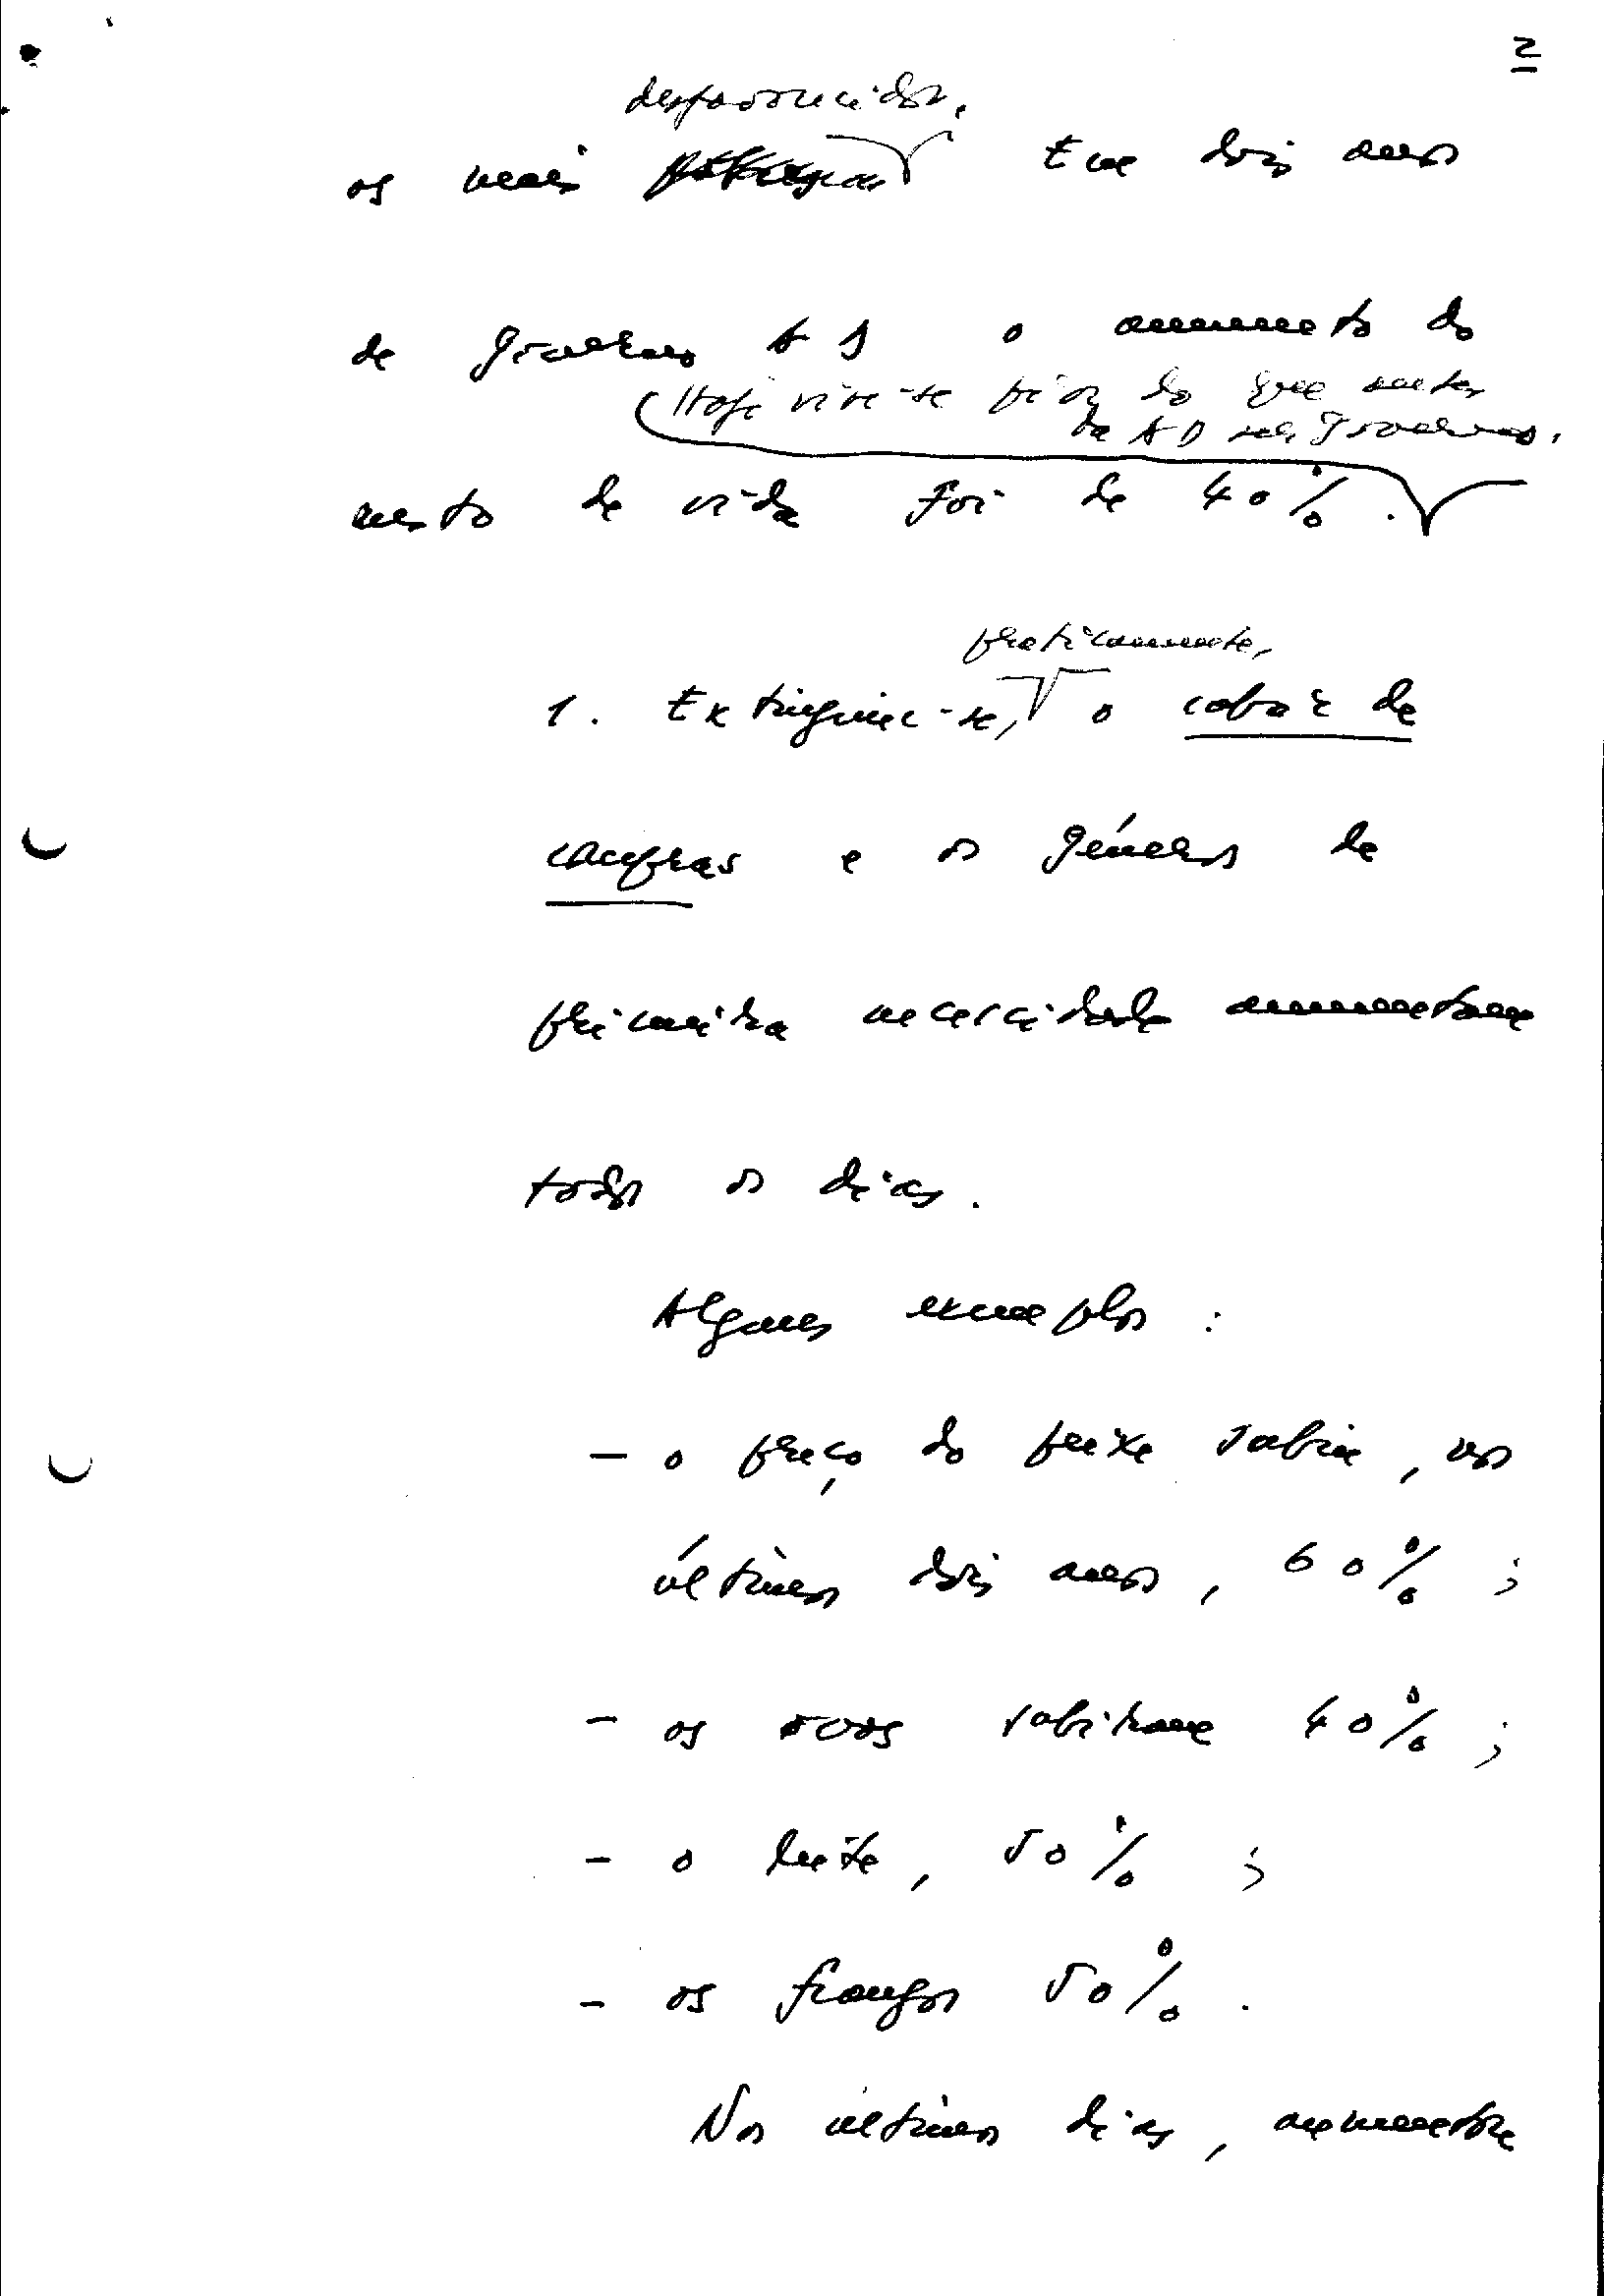 2
desfavorecidos.
os mais Em dois anos
de governo AD o aumento do
Hoje vive-se pior do que antes
da AD ser Governo.
custo de vida foi de 40%.
praticamente,
1. Extinguiu-se, o cabaz de
compras e os géneros de
primeira necessidade aumentam
todos os dias.
Alguns exemplos:
- o preço do peixe subiu, nos
últimos dois anos, 60%;
- os ovos subiram 40%;
- o leite, 50%;
- os frangos 50%.
Nos últimos dias, aumentou